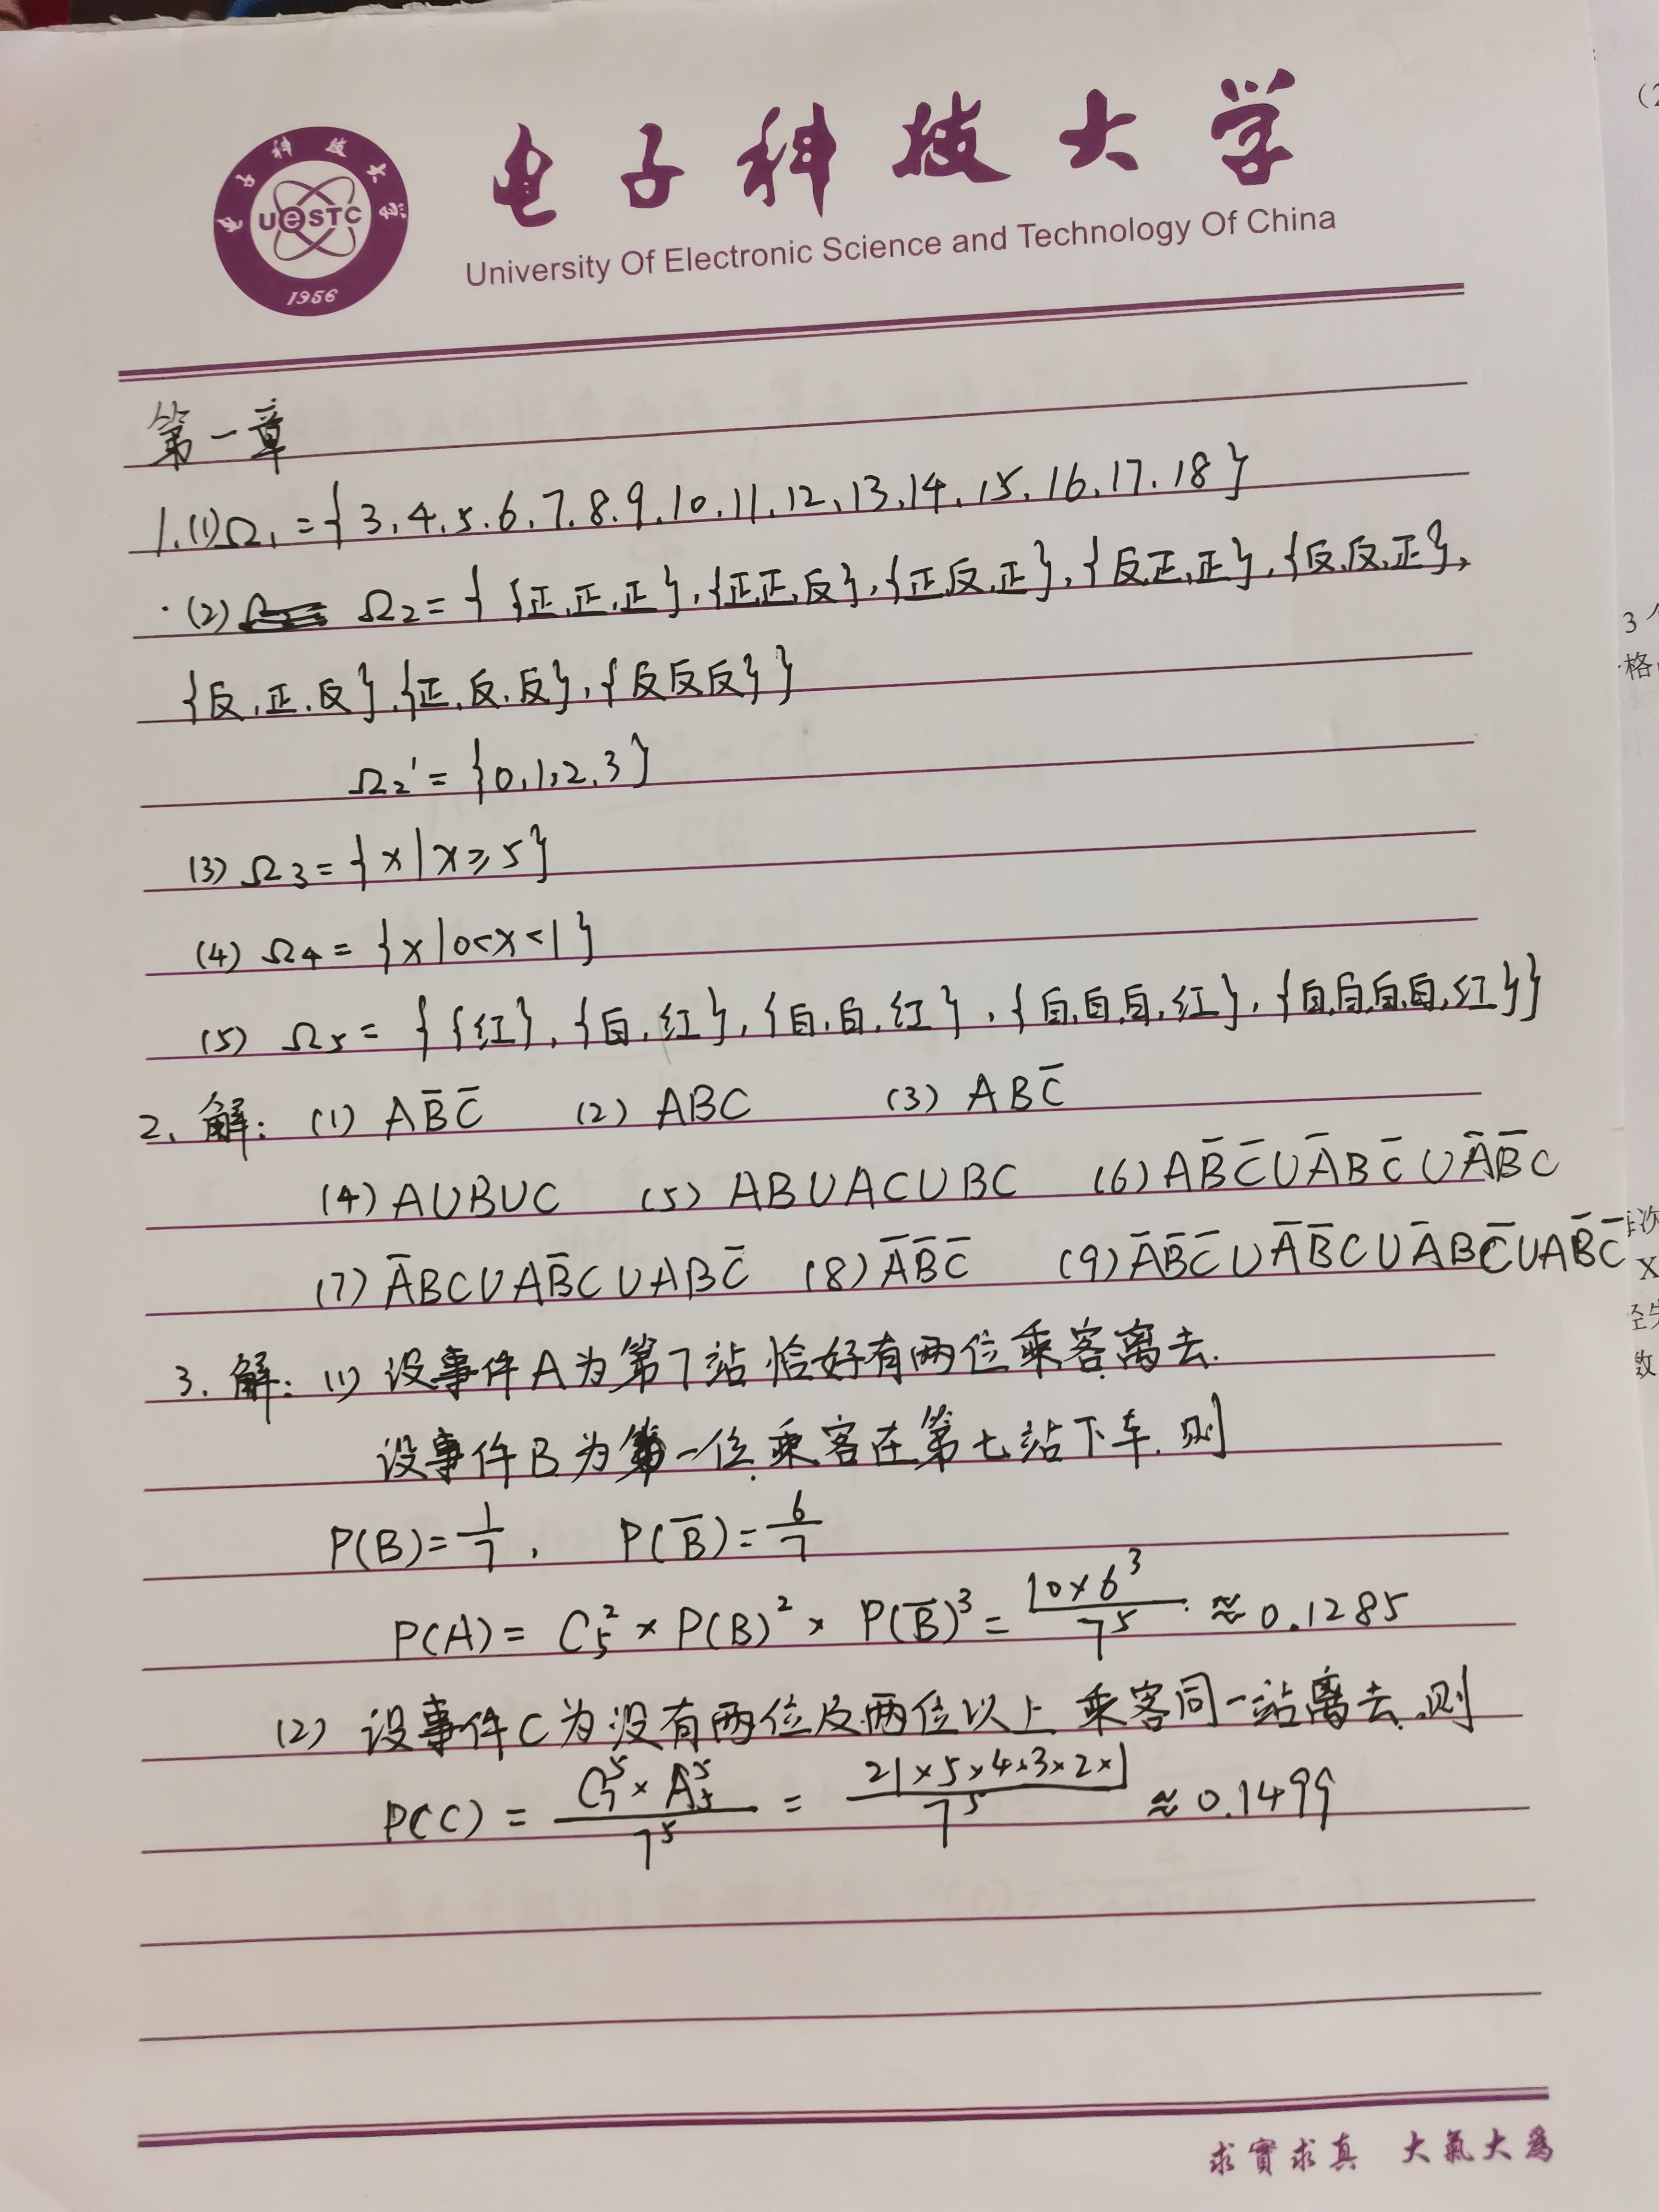 电子科技大学
University Of Electronic Science and Technology Of China
电子科技大学
UeSTC
1956
第一章
1.(1)Ω₁={3,4,5,6,7,8,9,10,11,12,13,14,15,16,17,18}
(2) Ω₂={{正,正,正},{正,正,反},{正,反,正},{反,正,正},{反,反,正},
{反,正,反},{正,反,反},{反反反}}
Ω₂'={0,1,2,3}
(3) Ω₃={x|x≥5}
(4) Ω₄={x|0<x<1}
(5) Ω₅={{红},{白,红},{白,白,红},{白,白,白,红},{白,白,白,白,红}}
2. 解: (1) AB̅C̅ (2) ABC (3) ABC̅
(4) A∪B∪C (5) AB∪AC∪BC (6) AB̅C̅∪A̅BC̅∪A̅B̅C
(7) A̅BC∪AB̅C∪ABC̅ (8) A̅B̅C̅ (9) A̅B̅C̅∪A̅B̅C∪A̅BC̅∪AB̅C̅
3. 解: (1) 设事件A为第7站恰好有两位乘客离去.
设事件B为第一位乘客在第七站下车.则
P(B)=1/7, P(B̅)=6/7
P(A)=C₅²×P(B)²×P(B̅)³=10×6³/7⁵≈0.1285
(2) 设事件C为没有两位及两位以上乘客同一站离去.则
P(C)=C₇⁵×A₅⁵/7⁵=21×5×4×3×2×1/7⁵≈0.1499
求實求真 大氣大為
(2
3个
格
每次
X
径
数